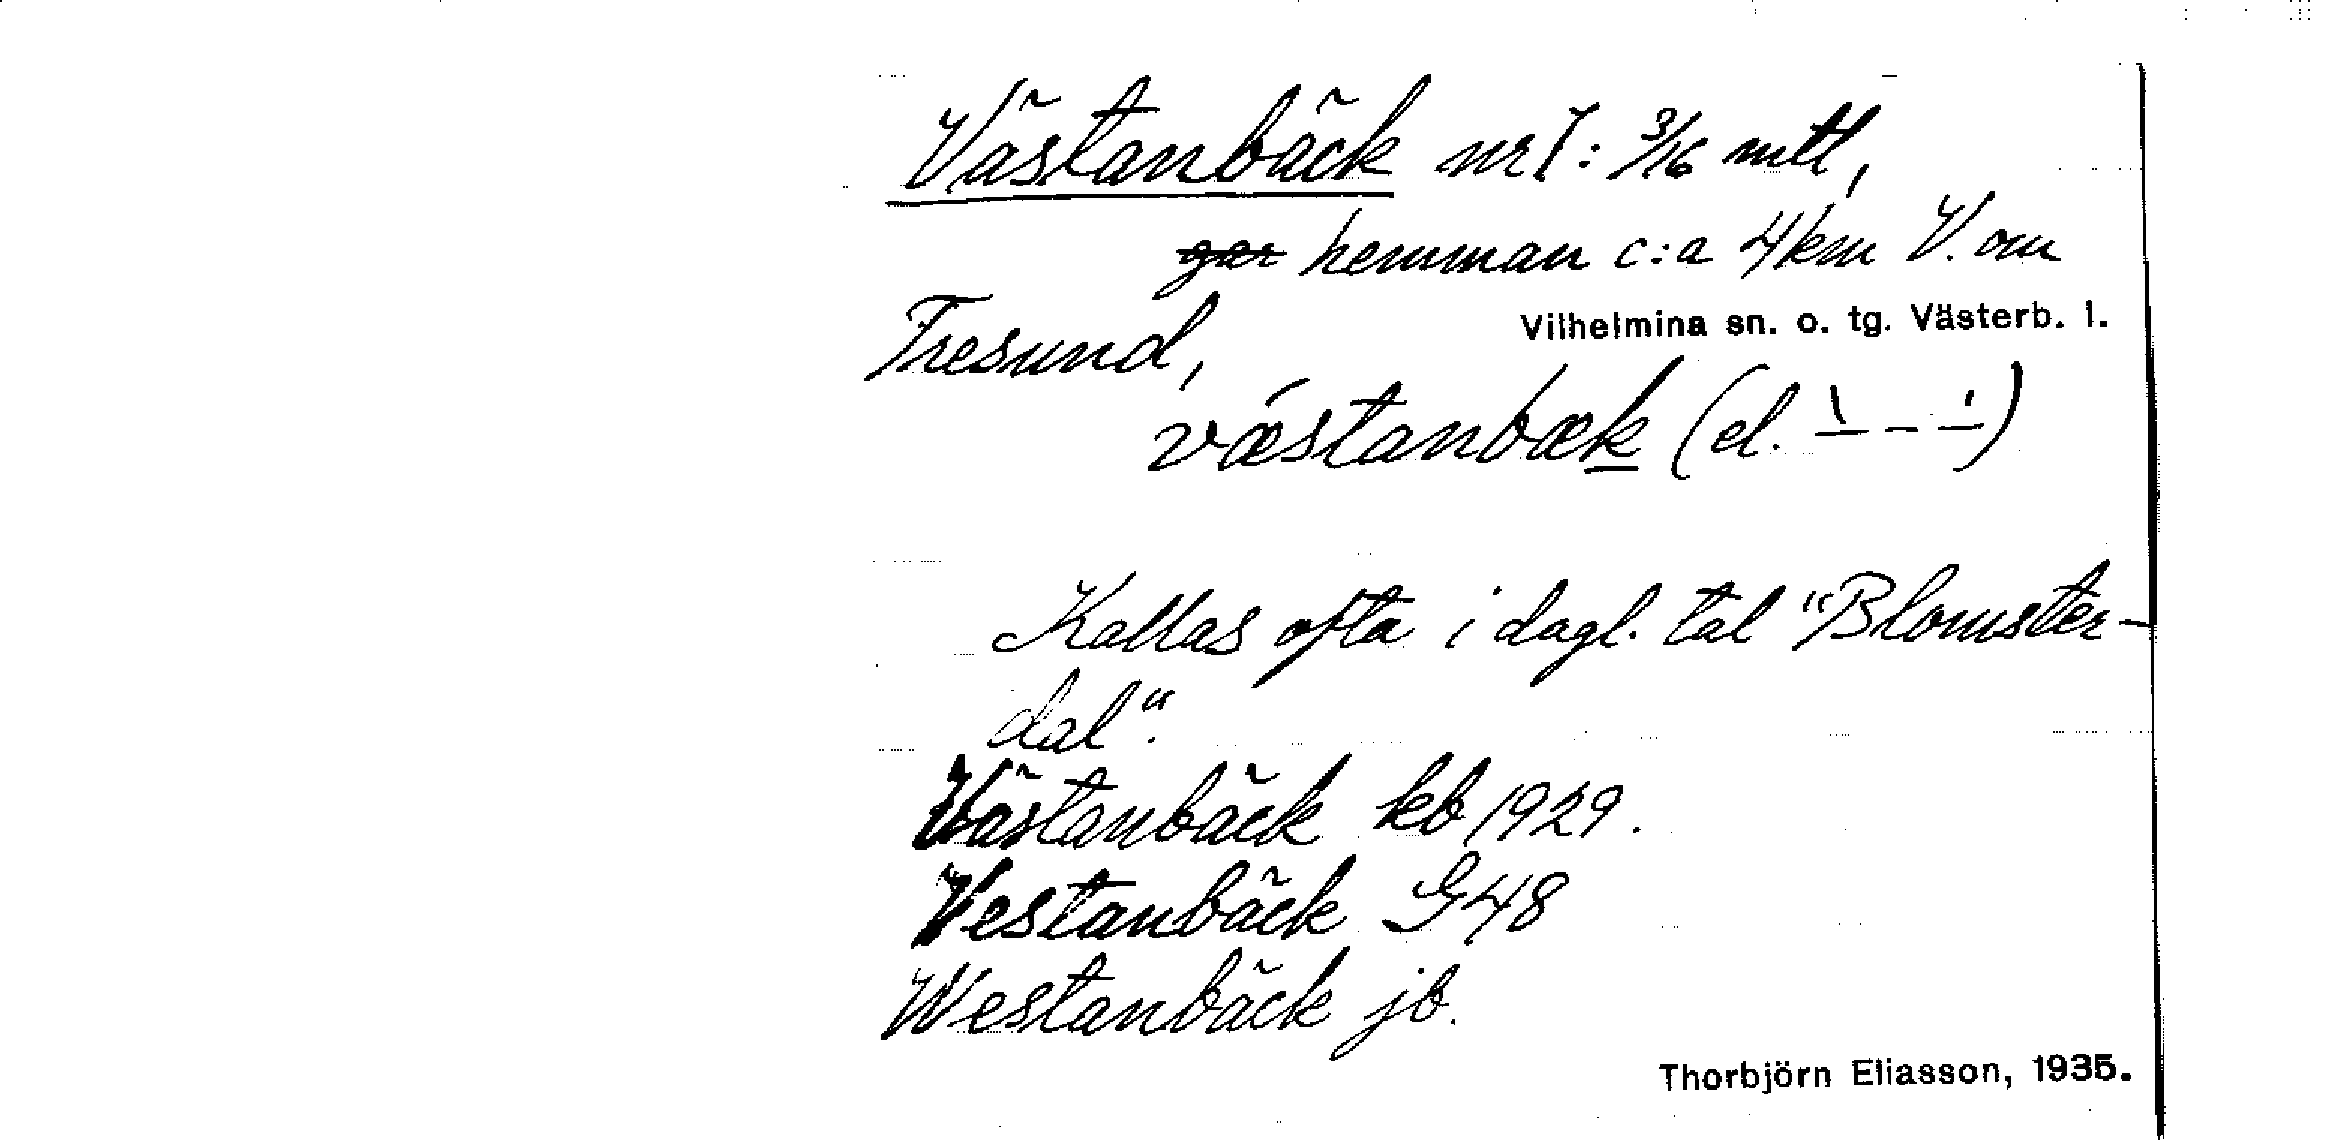 Västanbäck nr 1: 3/16 mtl,
gar hemman c:a 4 km V. om
Vilhelmina sn. o. tg. Västerb. l.
Fresund,
vǽstanbæk (el. \̲ - -́)
Kallas ofta i dagl. tal "Blomster-
dal".
Västanbäck kb 1929.
Vestanbäck G48
Westanbäck jb.
Thorbjörn Eliasson, 1935.